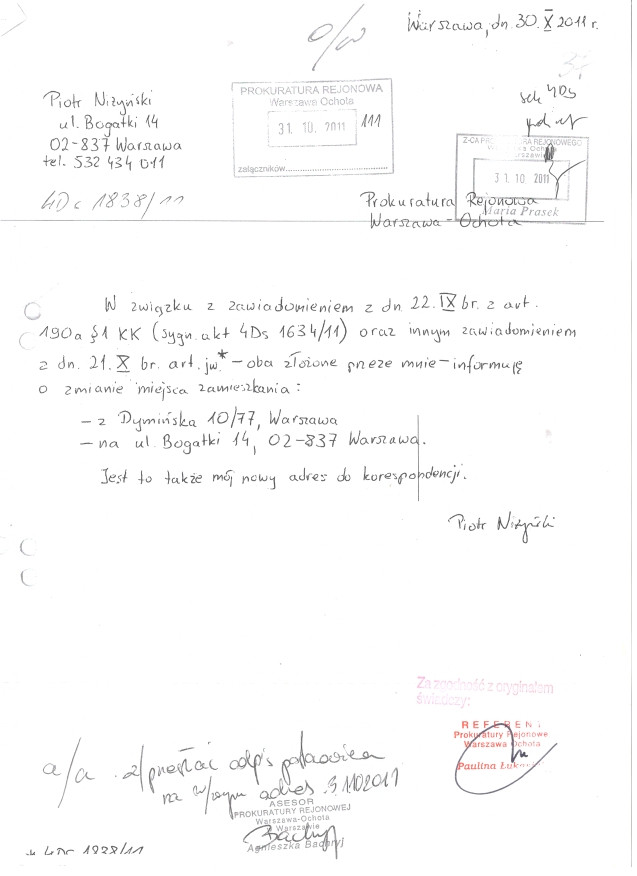 Warszawa, dn. 30. X 2011 r.
o/w
37
Piotr Niżyński
ul. Bogatki 14
02-837 Warszawa
tel. 532 434 011
PROKURATURA REJONOWA
Warszawa Ochota
31. 10. 2011 111
załączników
sek 4Ds
Z-CA PROKURATORA REJONOWEGO
Warszawa Ochota
w Warszawie
31. 10. 2011
Maria Prasek
4Dc 1838/11
Prokuratura Rejonowa
Warszawa - Ochota
W związku z zawiadomieniem z dn. 22. IX br. z art.
190a §1 KK (sygn. akt 4Ds 1634/11) oraz innym zawiadomieniem
z dn. 21. X br. art. jw.* – oba złożone przeze mnie – informuję
o zmianie miejsca zamieszkania :
– z Dymińska 10/77, Warszawa
– na ul. Bogatki 14, 02-837 Warszawa.
Jest to także mój nowy adres do korespondencji.
Piotr Niżyński
Za zgodność z oryginałem
świadczy:
REFERENT
Prokuratury Rejonowej
Warszawa Ochota
Paulina
a/a . 2/ przesłać odpis
na adres 31102011
ASESOR
PROKURATURY REJONOWEJ
Warszawa-Ochota
w Warszawie
Agnieszka Badaryj
* 4Dc 1838/11